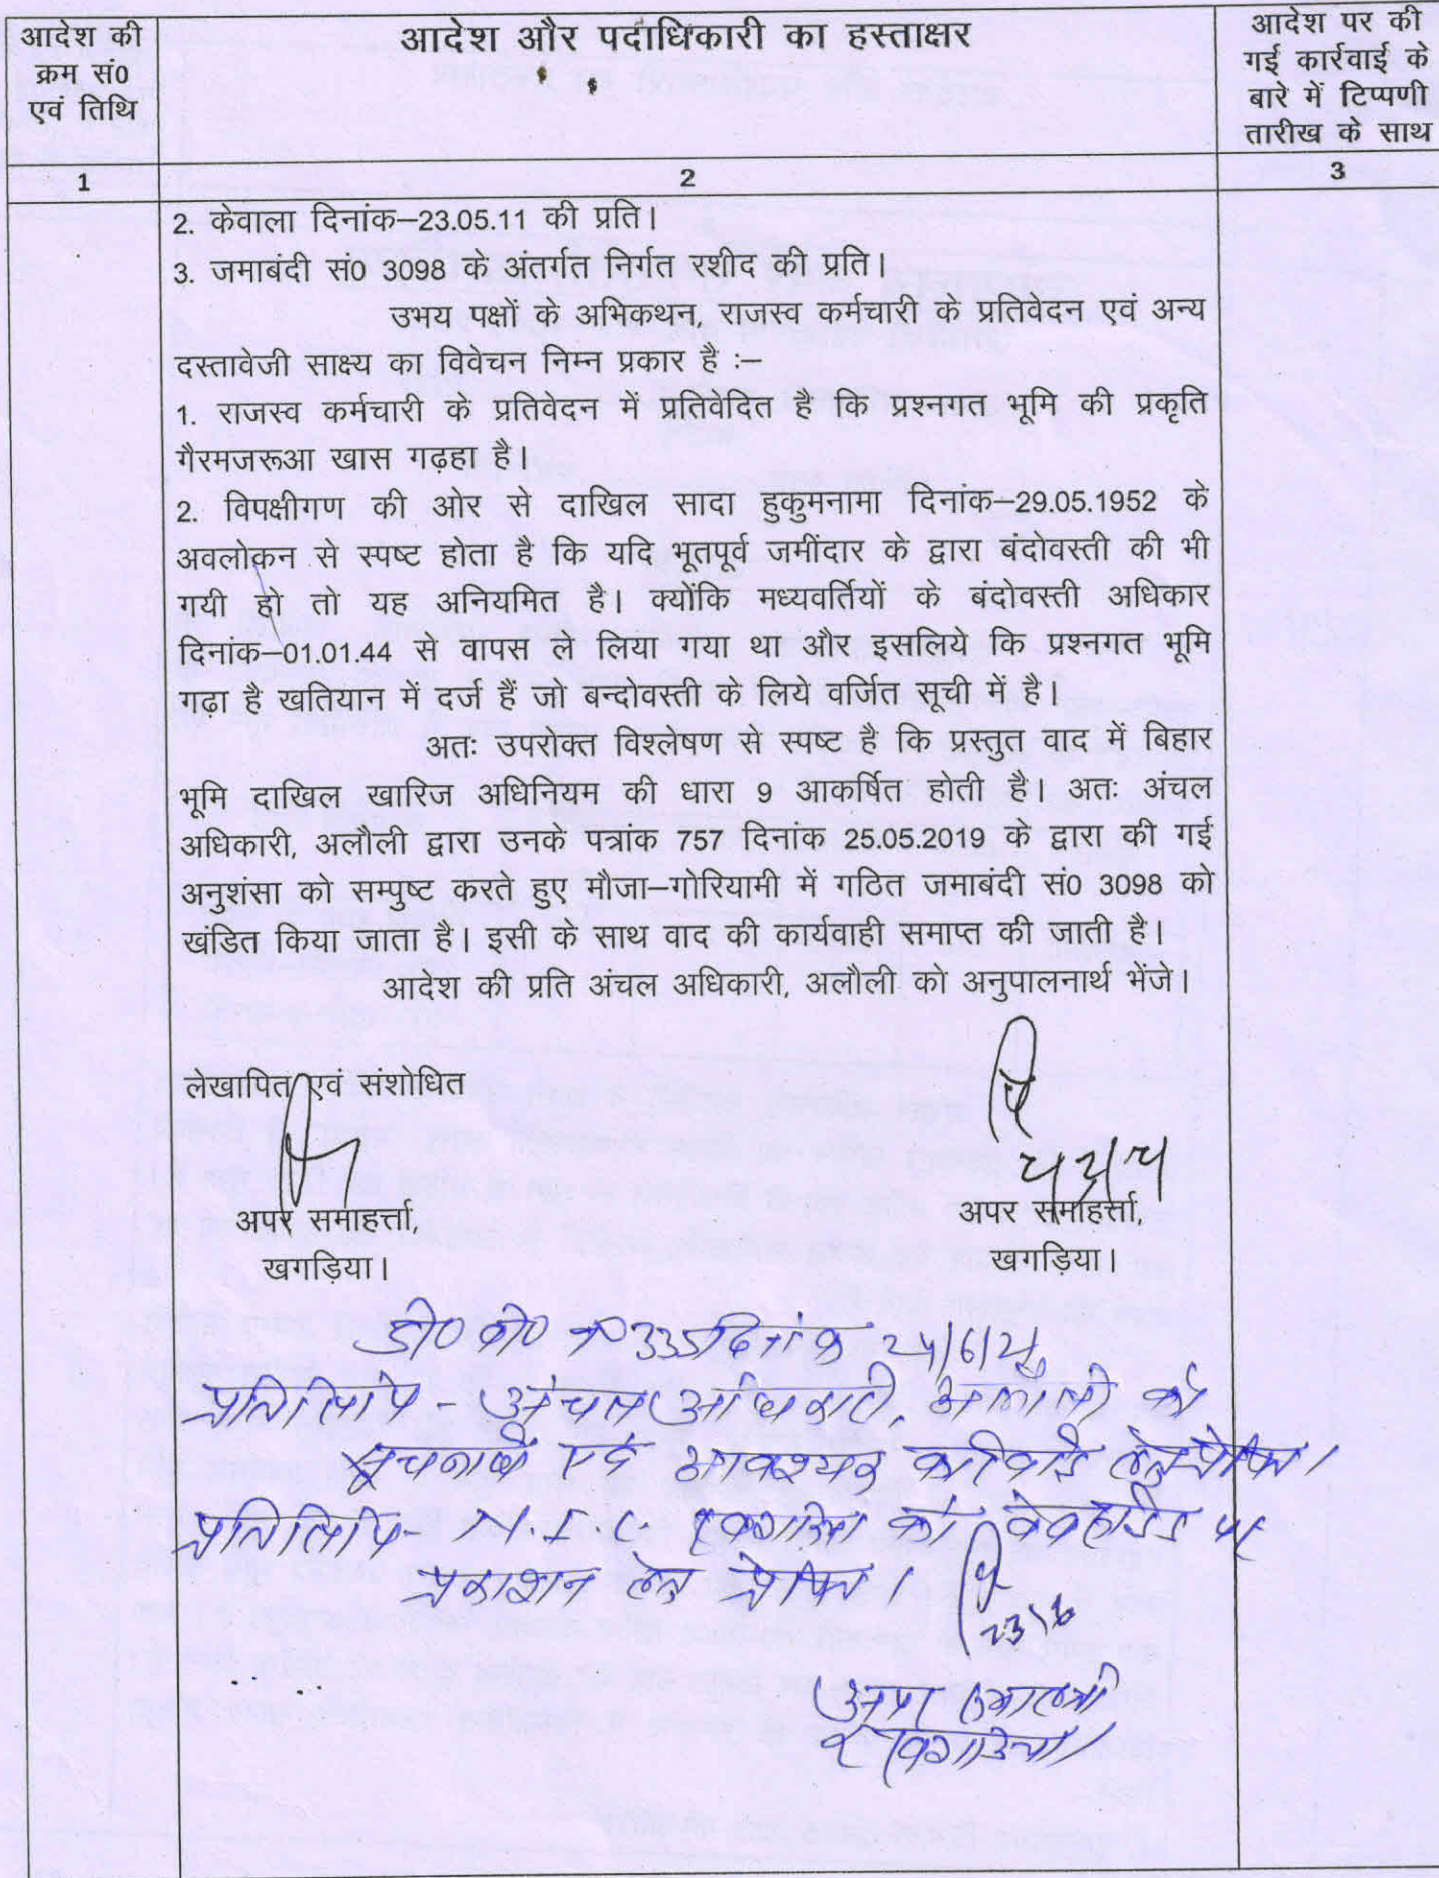 आदेश की
क्रम सं0
एवं तिथि
आदेश और पदाधिकारी का हस्ताक्षर
आदेश पर की
गई कार्रवाई के
बारे में टिप्पणी
तारीख के साथ
1
2
3
2. केवाला दिनांक–23.05.11 की प्रति।
3. जमाबंदी सं0 3098 के अंतर्गत निर्गत रशीद की प्रति।
उभय पक्षों के अभिकथन, राजस्व कर्मचारी के प्रतिवेदन एवं अन्य
दस्तावेजी साक्ष्य का विवेचन निम्न प्रकार है :–
1. राजस्व कर्मचारी के प्रतिवेदन में प्रतिवेदित है कि प्रश्नगत भूमि की प्रकृति
गैरमजरूआ खास गढ़हा है।
2. विपक्षीगण की ओर से दाखिल सादा हुकुमनामा दिनांक–29.05.1952 के
अवलोकन से स्पष्ट होता है कि यदि भूतपूर्व जमींदार के द्वारा बंदोवस्ती की भी
गयी हो तो यह अनियमित है। क्योंकि मध्यवर्तियों के बंदोवस्ती अधिकार
दिनांक–01.01.44 से वापस ले लिया गया था और इसलिये कि प्रश्नगत भूमि
गढ़ा है खतियान में दर्ज हैं जो बन्दोवस्ती के लिये वर्जित सूची में है।
अतः उपरोक्त विश्लेषण से स्पष्ट है कि प्रस्तुत वाद में बिहार
भूमि दाखिल खारिज अधिनियम की धारा 9 आकर्षित होती है। अतः अंचल
अधिकारी, अलौली द्वारा उनके पत्रांक 757 दिनांक 25.05.2019 के द्वारा की गई
अनुशंसा को सम्पुष्ट करते हुए मौजा–गोरियामी में गठित जमाबंदी सं0 3098 को
खंडित किया जाता है। इसी के साथ वाद की कार्यवाही समाप्त की जाती है।
आदेश की प्रति अंचल अधिकारी, अलौली को अनुपालनार्थ भेंजे।
लेखापित एवं संशोधित
अपर समाहर्त्ता,
खगड़िया।
अपर समाहर्त्ता,
खगड़िया।
डी0 बी0 न0 335 दिनांक
प्रतिलिपि - अंचल अधिकारी, अलौली को
सूचनार्थ एवं आवश्यक कार्रवाई हेतु प्रेषित।
प्रतिलिपि - N.I.C. खगड़िया को वेवसाईट पर
प्रकाशन हेतु प्रेषित।
23/6
अपर समाहर्त्ता
खगड़िया।